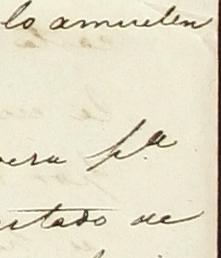 lo amuelen
pera pª
ertado de